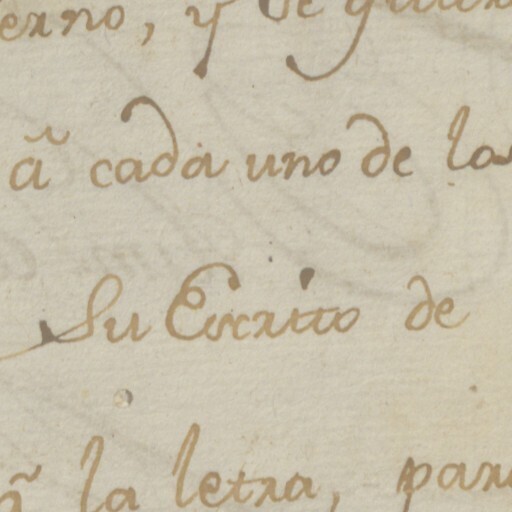 erno, y se
ã cada uno de la
Su Escrito de
la letra, para